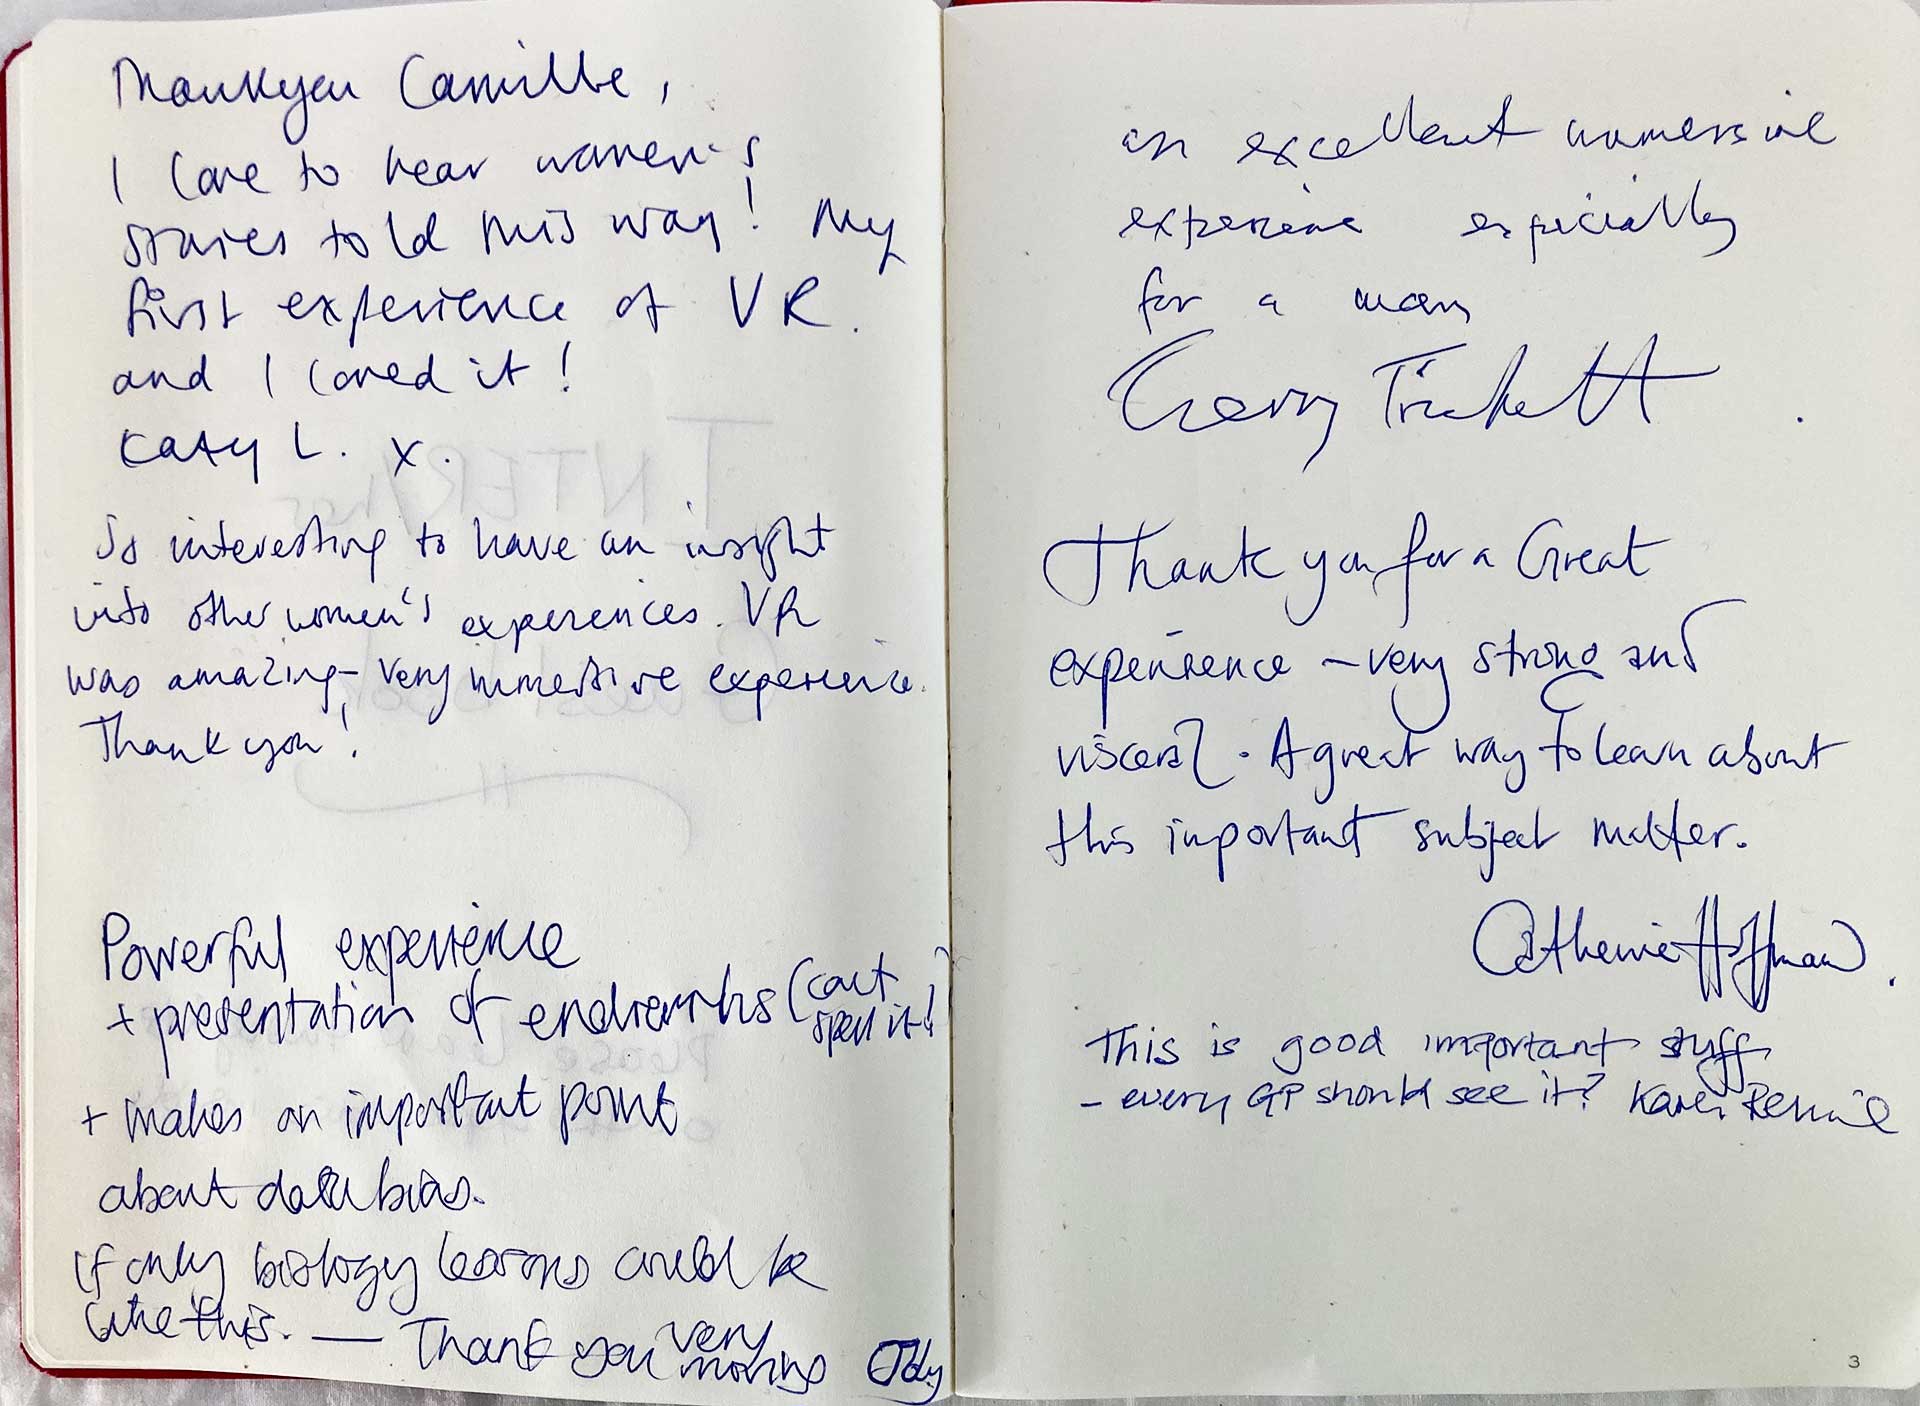 Thankyou Camille,
I love to hear women's
stories told this way! My
first experience of VR.
and I loved it!
Katy L. x.
So interesting to have an insight
into other women's experiences. VR
was amazing - very immersive experience.
Thank you!
Powerful experience
+ presentation of endremitris (cant
spell it!)
+ makes an important point
about data bias.
if only biology lessons could be
like this. — Thank you very
moving Jody
an excellent immersive
experience especially
for a man
Gerry Trickett
Thank you for a Great
experience - very strong and
visceral. A great way to learn about
this important subject matter.
Catherine Hoffman.
This is good important stuff
- every GP should see it? Karen Rennie
3